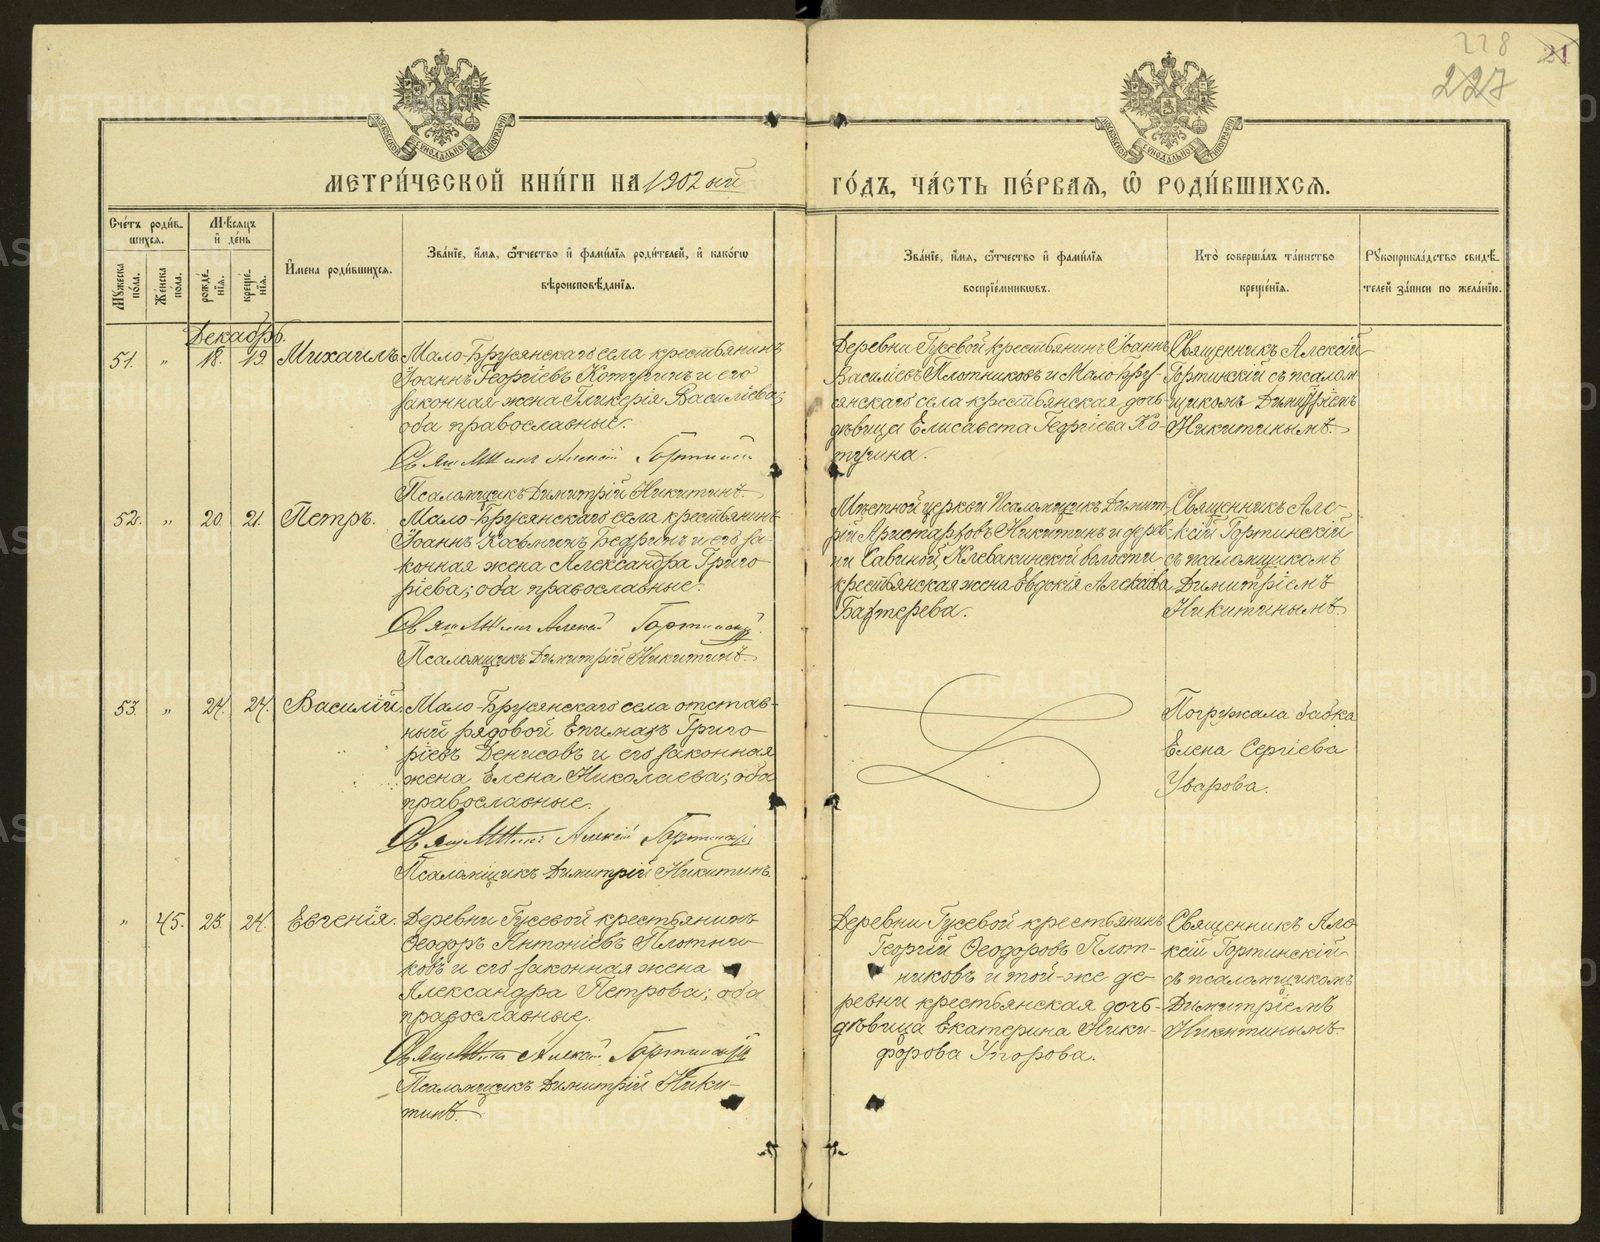 228
227
21
МЕТРИ́ЧЕСКОЙ КНИ́ГИ НА 1902 ый
ГО́ДЪ, ЧА́СТЬ ПЕ́РВАЯ, Ѿ РОДИ́ВШИХСЯ.
Сче́тъ роди́в-
шихся.
Мѣсяцъ
и̂ де́нь
Му́жеска по́ла.
Же́нска по́ла.
рожде́-
нїя.
креще́-
нїя.
И̂мена роди́вшихся.
Зва́нїе, и̂́мя, ѻ҆́тчество и̂ фами́лїя роди́телей, и̂ како́гѡ
вѣроисповѣ́данїя.
Зва́нїе, и̂́мя, ѻ҆́тчество и̂ фами́лїя
воспрїе́мниковъ.
Кто̀ соверша́лъ та́инство
креще́нїя.
Рꙋкоприкла́дство свидѣ́-
телей за́писи по жела́нїю.
Декабрь.
51. " 18. 19. Михаилъ.
Мало-Брусянскаго села крестьянинъ
Іоаннъ Георгіевъ Котугинъ и его
законная жена Гликерія Васильева;
оба православные.
Священникъ Алексій Гортинскій
Псаломщикъ Димитрій Никитинъ.
Деревни Гусевой крестьянинъ Іоаннъ
Василіевъ Плотниковъ и Мало-Бру-
сянскаго села крестьянская дочь
дѣвица Елисавета Георгіева Ко-
тугина.
Священникъ Алексій
Гортинскій съ псалом-
щикомъ Димитріемъ
Никитинымъ.
52. " 20. 21. Петръ.
Мало-Брусянскаго села крестьянинъ
Іоаннъ Косьминъ Бедринъ и его за-
конная жена Александра Григо-
ріева; оба православные.
Священникъ Алексій Гортинскій.
Псаломщикъ Димитрій Никитинъ.
Мѣстной церкви Псаломщикъ Димит-
рій Аристарховъ Никитинъ и дерев-
ни Савиной, Клевакинской волости
крестьянская жена Евдокія Алексіева
Бахтерева.
Священникъ Але-
ксій Гортинскій
съ псаломщикомъ
Димитріемъ
Никитинымъ
53. " 24. 24. Василій.
Мало-Брусянскаго села отстав-
ный рядовой Епимахъ Григо-
ріевъ Денисовъ и его законная
жена Елена Николаева; оба
православные.
Священникъ Алексій Гортинскій
Псаломщикъ Димитрій Никитинъ.
Погружала бабка
Елена Сергіева
Уварова.
" 45. 23. 24. Евгенія.
Деревни Гусевой крестьянинъ
Ѳеодоръ Антоніевъ Плотни-
ковъ и его законная жена
Александра Петрова; оба
православные.
Священникъ Алексій Гортинскій
Псаломщикъ Димитрій Ники-
тинъ.
Деревни Гусевой крестьянинъ
Георгій Ѳеодоровъ Плот-
никовъ и той-же де-
ревни крестьянская дочь-
дѣвица Екатерина Ники-
форова Упорова.
Священникъ Але-
ксій Гортинскій
съ псаломщикомъ
Димитріемъ
Никитинымъ